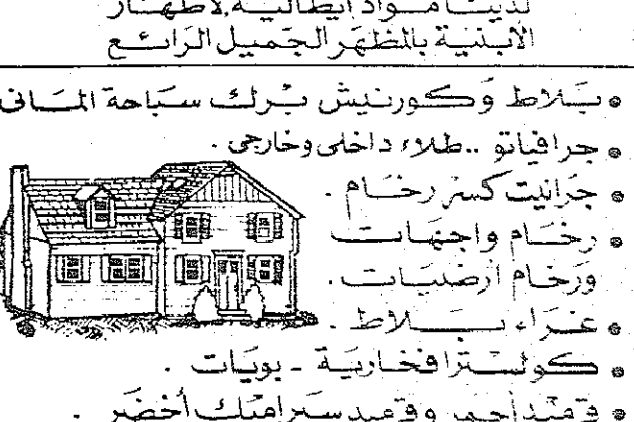 لدينا مواد ايطالية, لاظهار
الأبنية بالمظهر الجميل الرائع
• بلاط وكورنيش برك سباحة المانى
• جرافياتو .. طلاء داخلى وخارجى .
• جرانيت كسر رخام .
• رخام واجهات
ورخام ارضيات .
• غراء بلاط .
• كولسترا فخارية - بويات .
• قرميد أحمر وقرميد سيراميك أخضر .